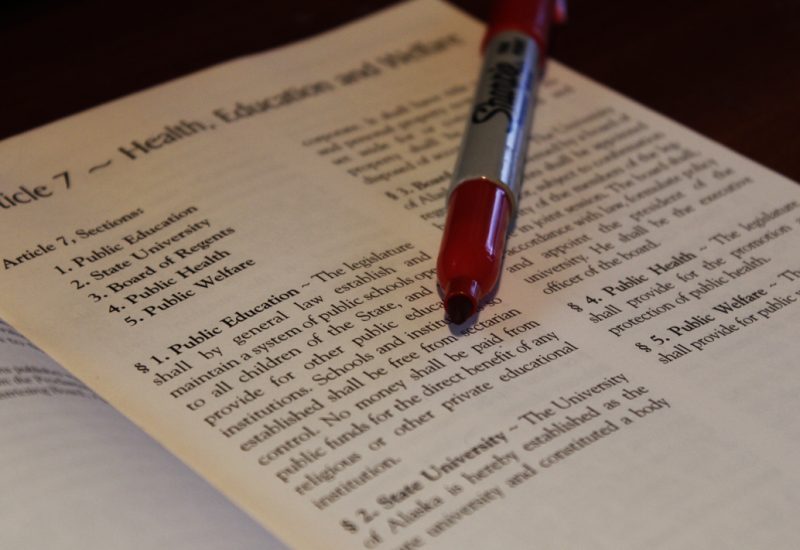 ticle 7 ~ Health, Education and Welfare
Article 7, Sections:
1. Public Education
2. State University
3. Board of Regents
4. Public Health
5. Public Welfare
§ 1. Public Education ~ The legislature
shall by general law establish and
maintain a system of public schools ope
to all children of the State, and
provide for other public educ
institutions. Schools and instit so
established shall be free from sectarian
control. No money shall be paid from
public funds for the direct benefit of any
religious or other private educational
institution.
§ 2. State University ~ The University
of Alaska is hereby established as the
university and constituted a body
and personal property
disposed of
§ 3. Board
of Alaska by a board of
shall be appointed
subject to confirmation
of the members of the
in joint session. The board shall,
accordance with law, formulate policy
and appoint the president of the
university. He shall be the executive
officer of the board.
§ 4. Public Health ~ The legislature
shall provide for the promotion
protection of public health.
§ 5. Public Welfare ~ Th
shall provide for public
Sharpie